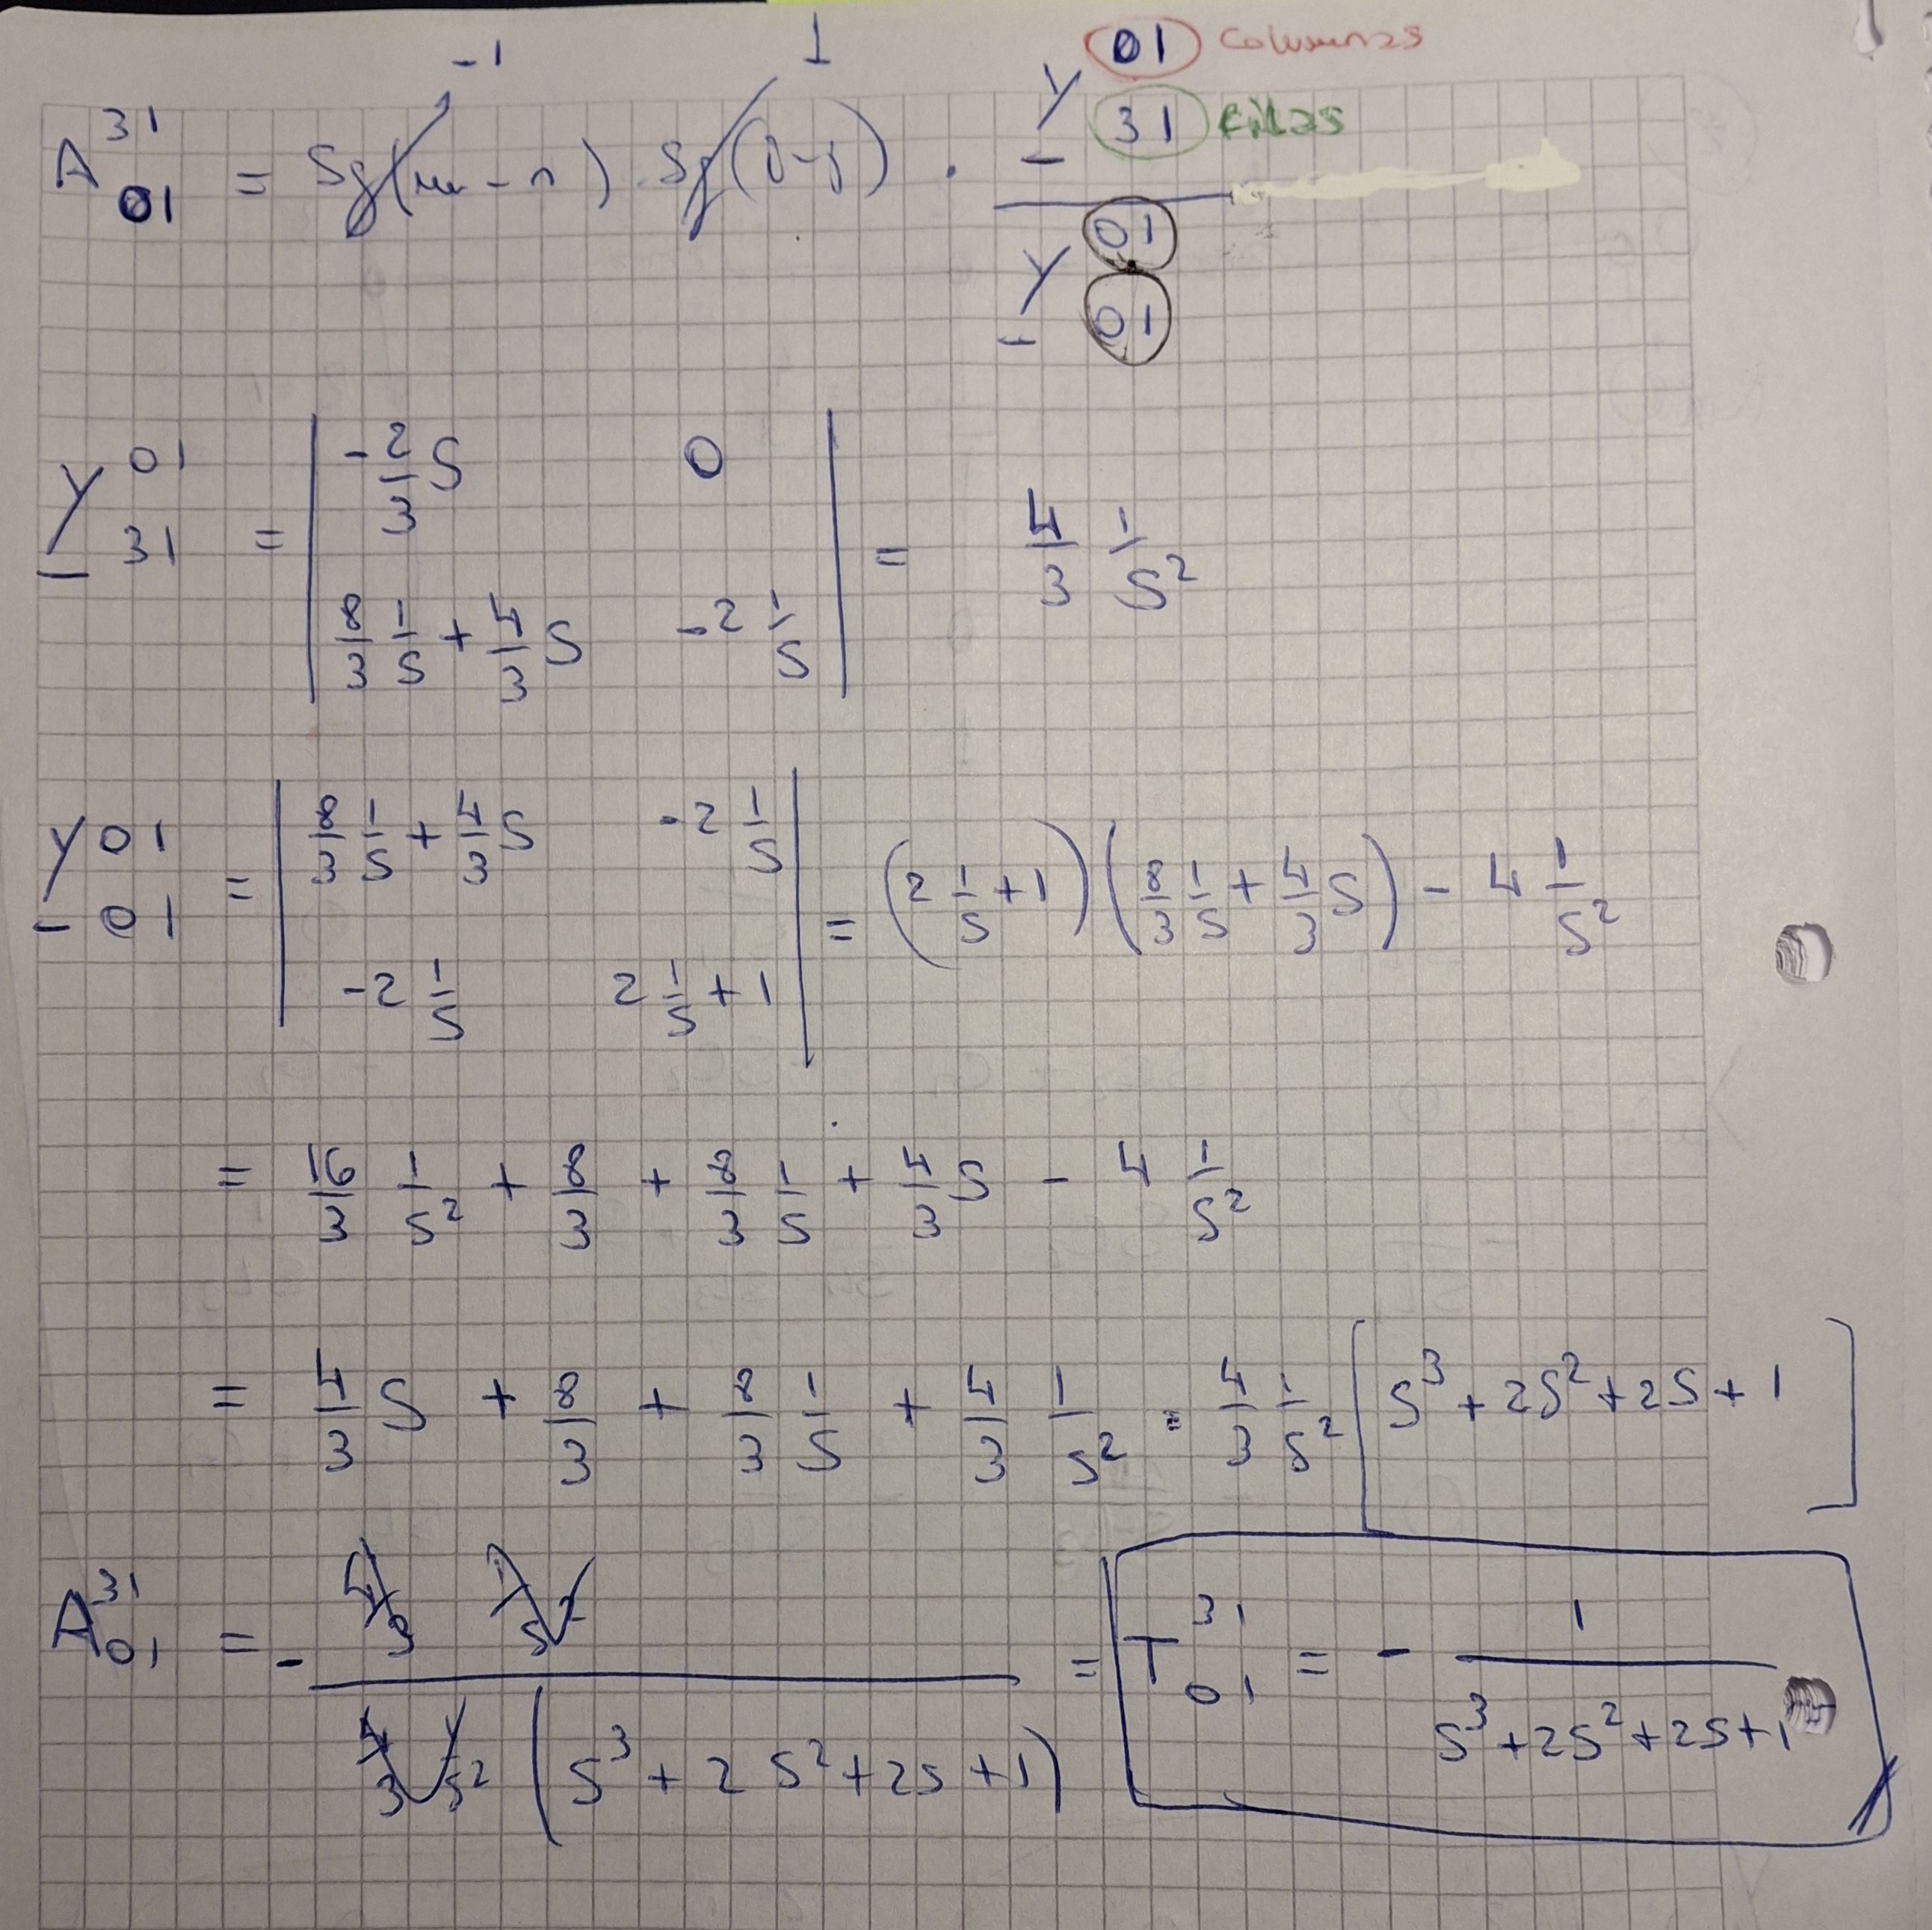 -1 1 01 columnas
A^31_01 = Sg(m-n) . Sg(j-j) . Y^01_31 filas
Y^01_01
Y^01_31 = | -2/3 S 0 ; 8/3 1/S + 4/3 S -2 1/S | = 4/3 1/S^2
Y^01_01 = | 8/3 1/S + 4/3 S -2 1/S ; -2 1/S 2 1/S + 1 | = (2 1/S + 1)(8/3 1/S + 4/3 S) - 4 1/S^2
= 16/3 1/S^2 + 8/3 + 8/3 1/S + 4/3 S - 4 1/S^2
= 4/3 S + 8/3 + 8/3 1/S + 4/3 1/S^2 = 4/3 1/S^2 [S^3 + 2S^2 + 2S + 1]
A^31_01 = - (4/3 1/S^2) / (4/3 1/S^2 (S^3 + 2S^2 + 2S + 1)) = T^31_01 = - 1 / (S^3 + 2S^2 + 2S + 1)